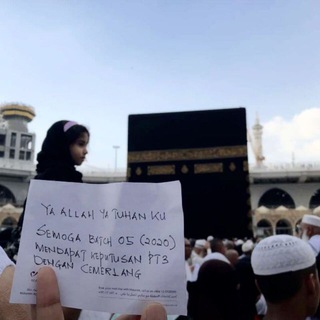 YA ALLAH YA TUHAN KU
SEMOGA BATCH 05 (2020)
MENDAPAT KEPUTUSAN PT3
DENGAN CEMERLANG